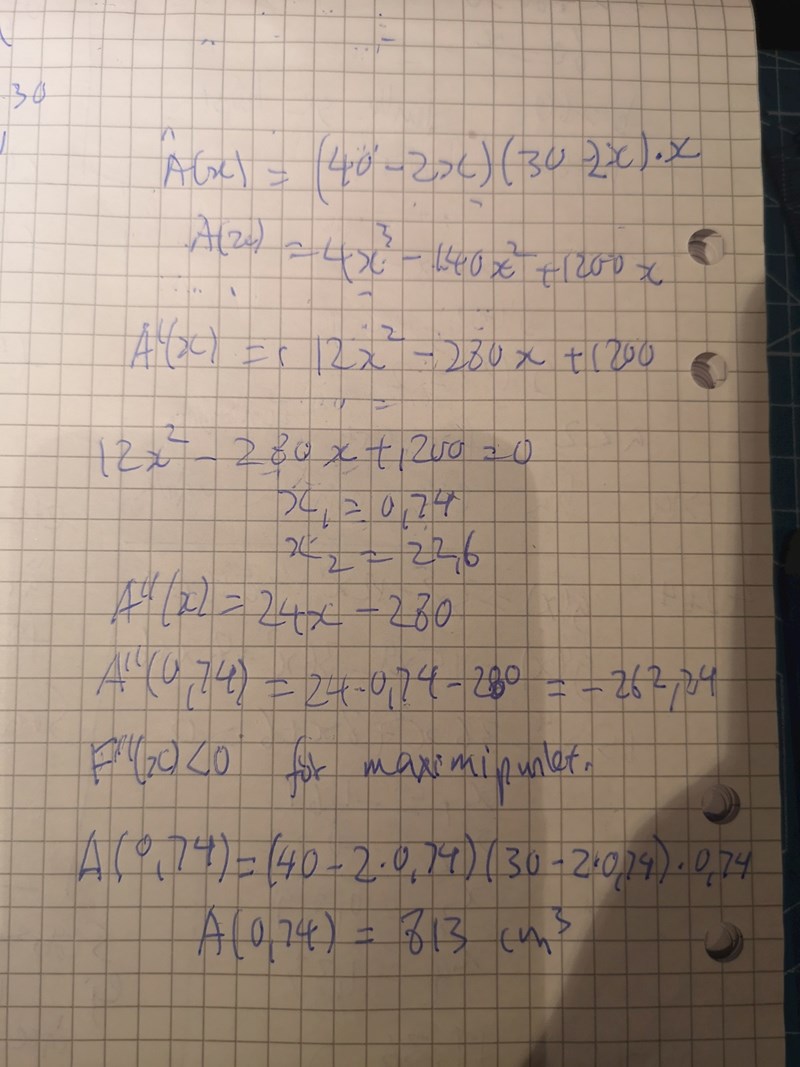 30
A(x) = (40 - 2x)(30 - 2x) · x
A(x) = 4x³ - 140x² + 1200x
A'(x) = 12x² - 280x + 1200
12x² - 280x + 1200 = 0
x₁ = 0,74
x₂ = 22,6
A''(x) = 24x - 280
A''(0,74) = 24 · 0,74 - 280 = -262,24
F''(x) < 0 for maximipunkt.
A(0,74) = (40 - 2·0,74)(30 - 2·0,74) · 0,74
A(0,74) = 813 cm³